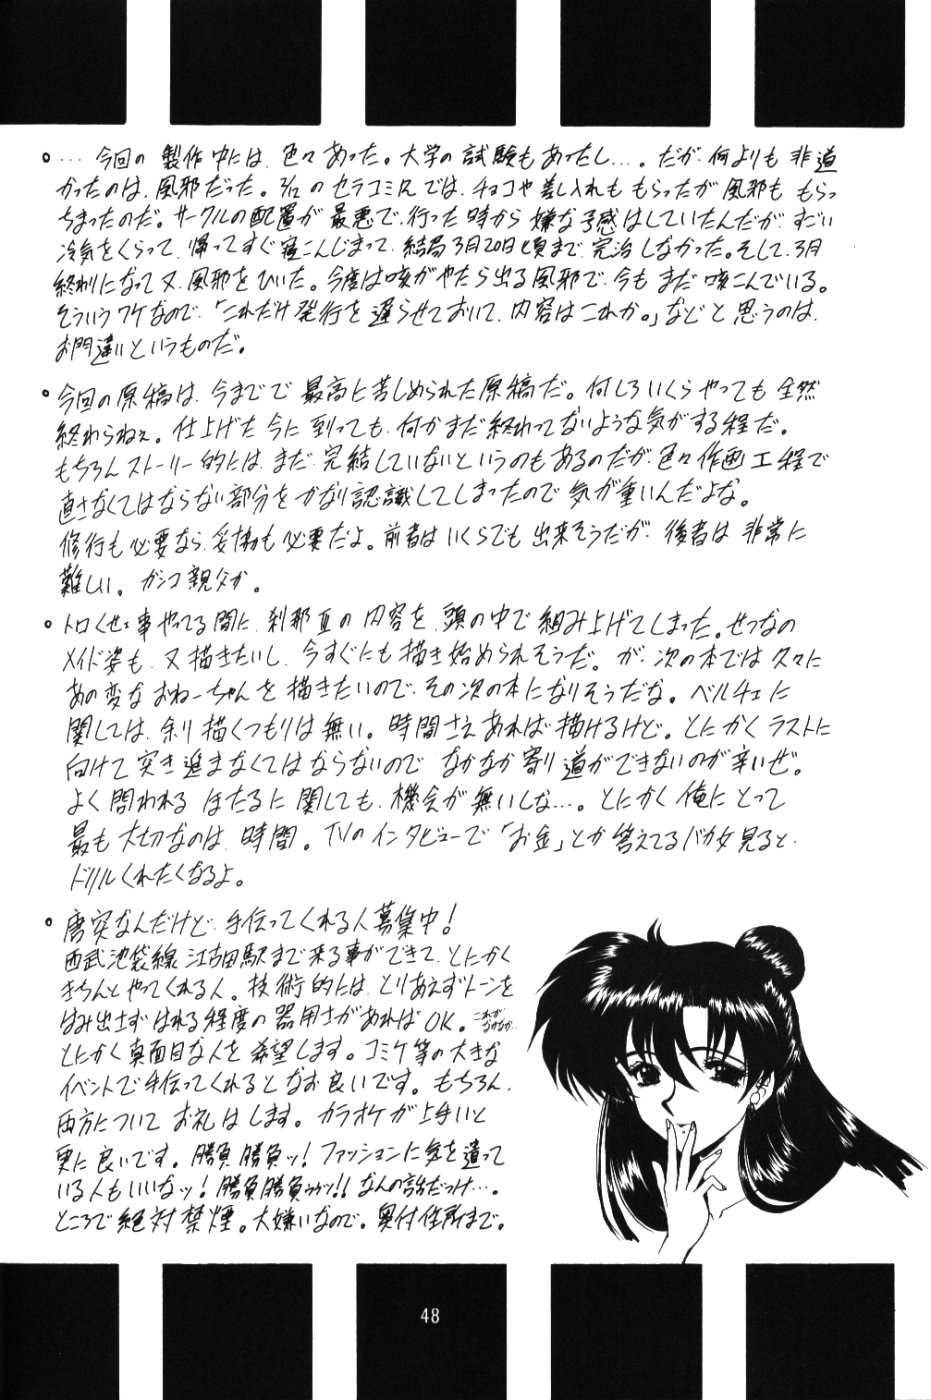 。…今回の製作中には、色々あった。大学の試験もあったし…。だが、何よりも非道
かったのは、風邪だった。3/12のセラコミRでは、チョコや差し入れももらったが風邪ももらっ
ちまったのだ。サークルの配置が最悪で、行った時から嫌な予感はしていたんだが、すごい
冷気をくらって、帰ってすぐ寝こんじまって、結局3月20日頃まで、完治しなかった。そして、3月
終わりになって又、風邪をひいた。今度は咳がやたら出る風邪で、今もまだ咳こんでいる。
そういうワケなので、「これだけ発行を遅らせておいて、内容はこれか。」などと思うのは、
お門違いというものだ。
。今回の原稿は、今までで最高に苦しめられた原稿だ。何しろいくらやっても全然
終わらねぇ。仕上げた今に到っても、何かまだ終わってないような気がする程だ。
もちろんストーリー的には、まだ完結していないというのもあるのだが、色々作画工程で
直さなくてはならない部分をかなり認識してしまったので気が重いんだよな。
修行も必要なら、妥協も必要だよ。前者はいくらでも出来そうだが、後者は非常に
難しい。ガンコ親父か。
。トロくせェ事やってる間に、刹那Ⅱの内容を、頭の中で組み上げてしまった。せつなの
メイド姿も、又描きたいし、今すぐにも描き始められそうだ。が、次の本では久々に
あの変なおねーちゃんを描きたいので、その次の本になりそうだな。ベルチェに
関しては、余り描くつもりは無い。時間さえあれば描けるけど。とにかくラストに
向けて突き進まなくてはならないのでなかなか寄り道ができないのが辛いぜ。
よく問われるほたるに関しても、機会が無いしな…。とにかく俺にとって
最も大切なのは、時間。TVのインタビューで「お金」とか答えてるバカ女見ると、
ドリルくれたくなるよ。
。唐突なんだけど、手伝ってくれる人募集中！
西武池袋線江古田駅まで来る事ができて、とにかく
きちんとやってくれる人。技術的には、とりあえずトーンを
はみ出さずはれる程度の器用さがあればOK。これがなかなか…
とにかく真面目な人を希望します。コミケ等の大きな
イベントで手伝ってくれるとなお良いです。もちろん、
両方についてお礼はします。カラオケが上手いと
更に良いです。勝負勝負ッ！ファッションに気を遣って
いる人もいいなッ！勝負勝負ゥゥッ!!なんの話だっけ…。
ところで絶対禁煙。大嫌いなので。奥付住所まで。
48